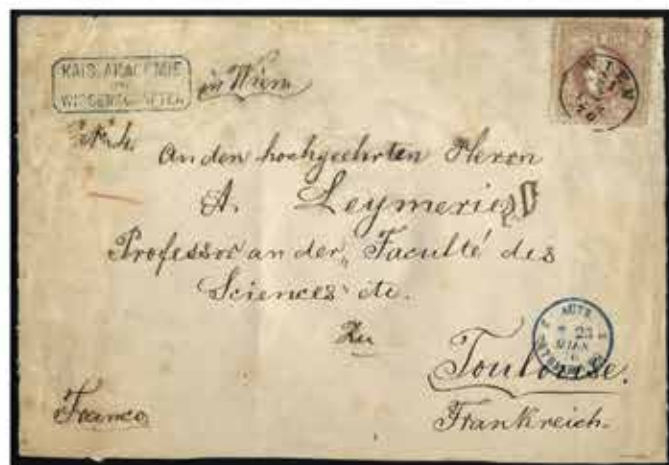 KAIS. AKADEMIE
DER
WISSENSCHAFTEN
in Wien
WIEN
70
An den hochgeehrten Herrn
A. Leymerie
Professor an der „Faculté des
Sciences“ etc.
Zu
AUTR.
23
Toulouse.
Franco
Frankreich.